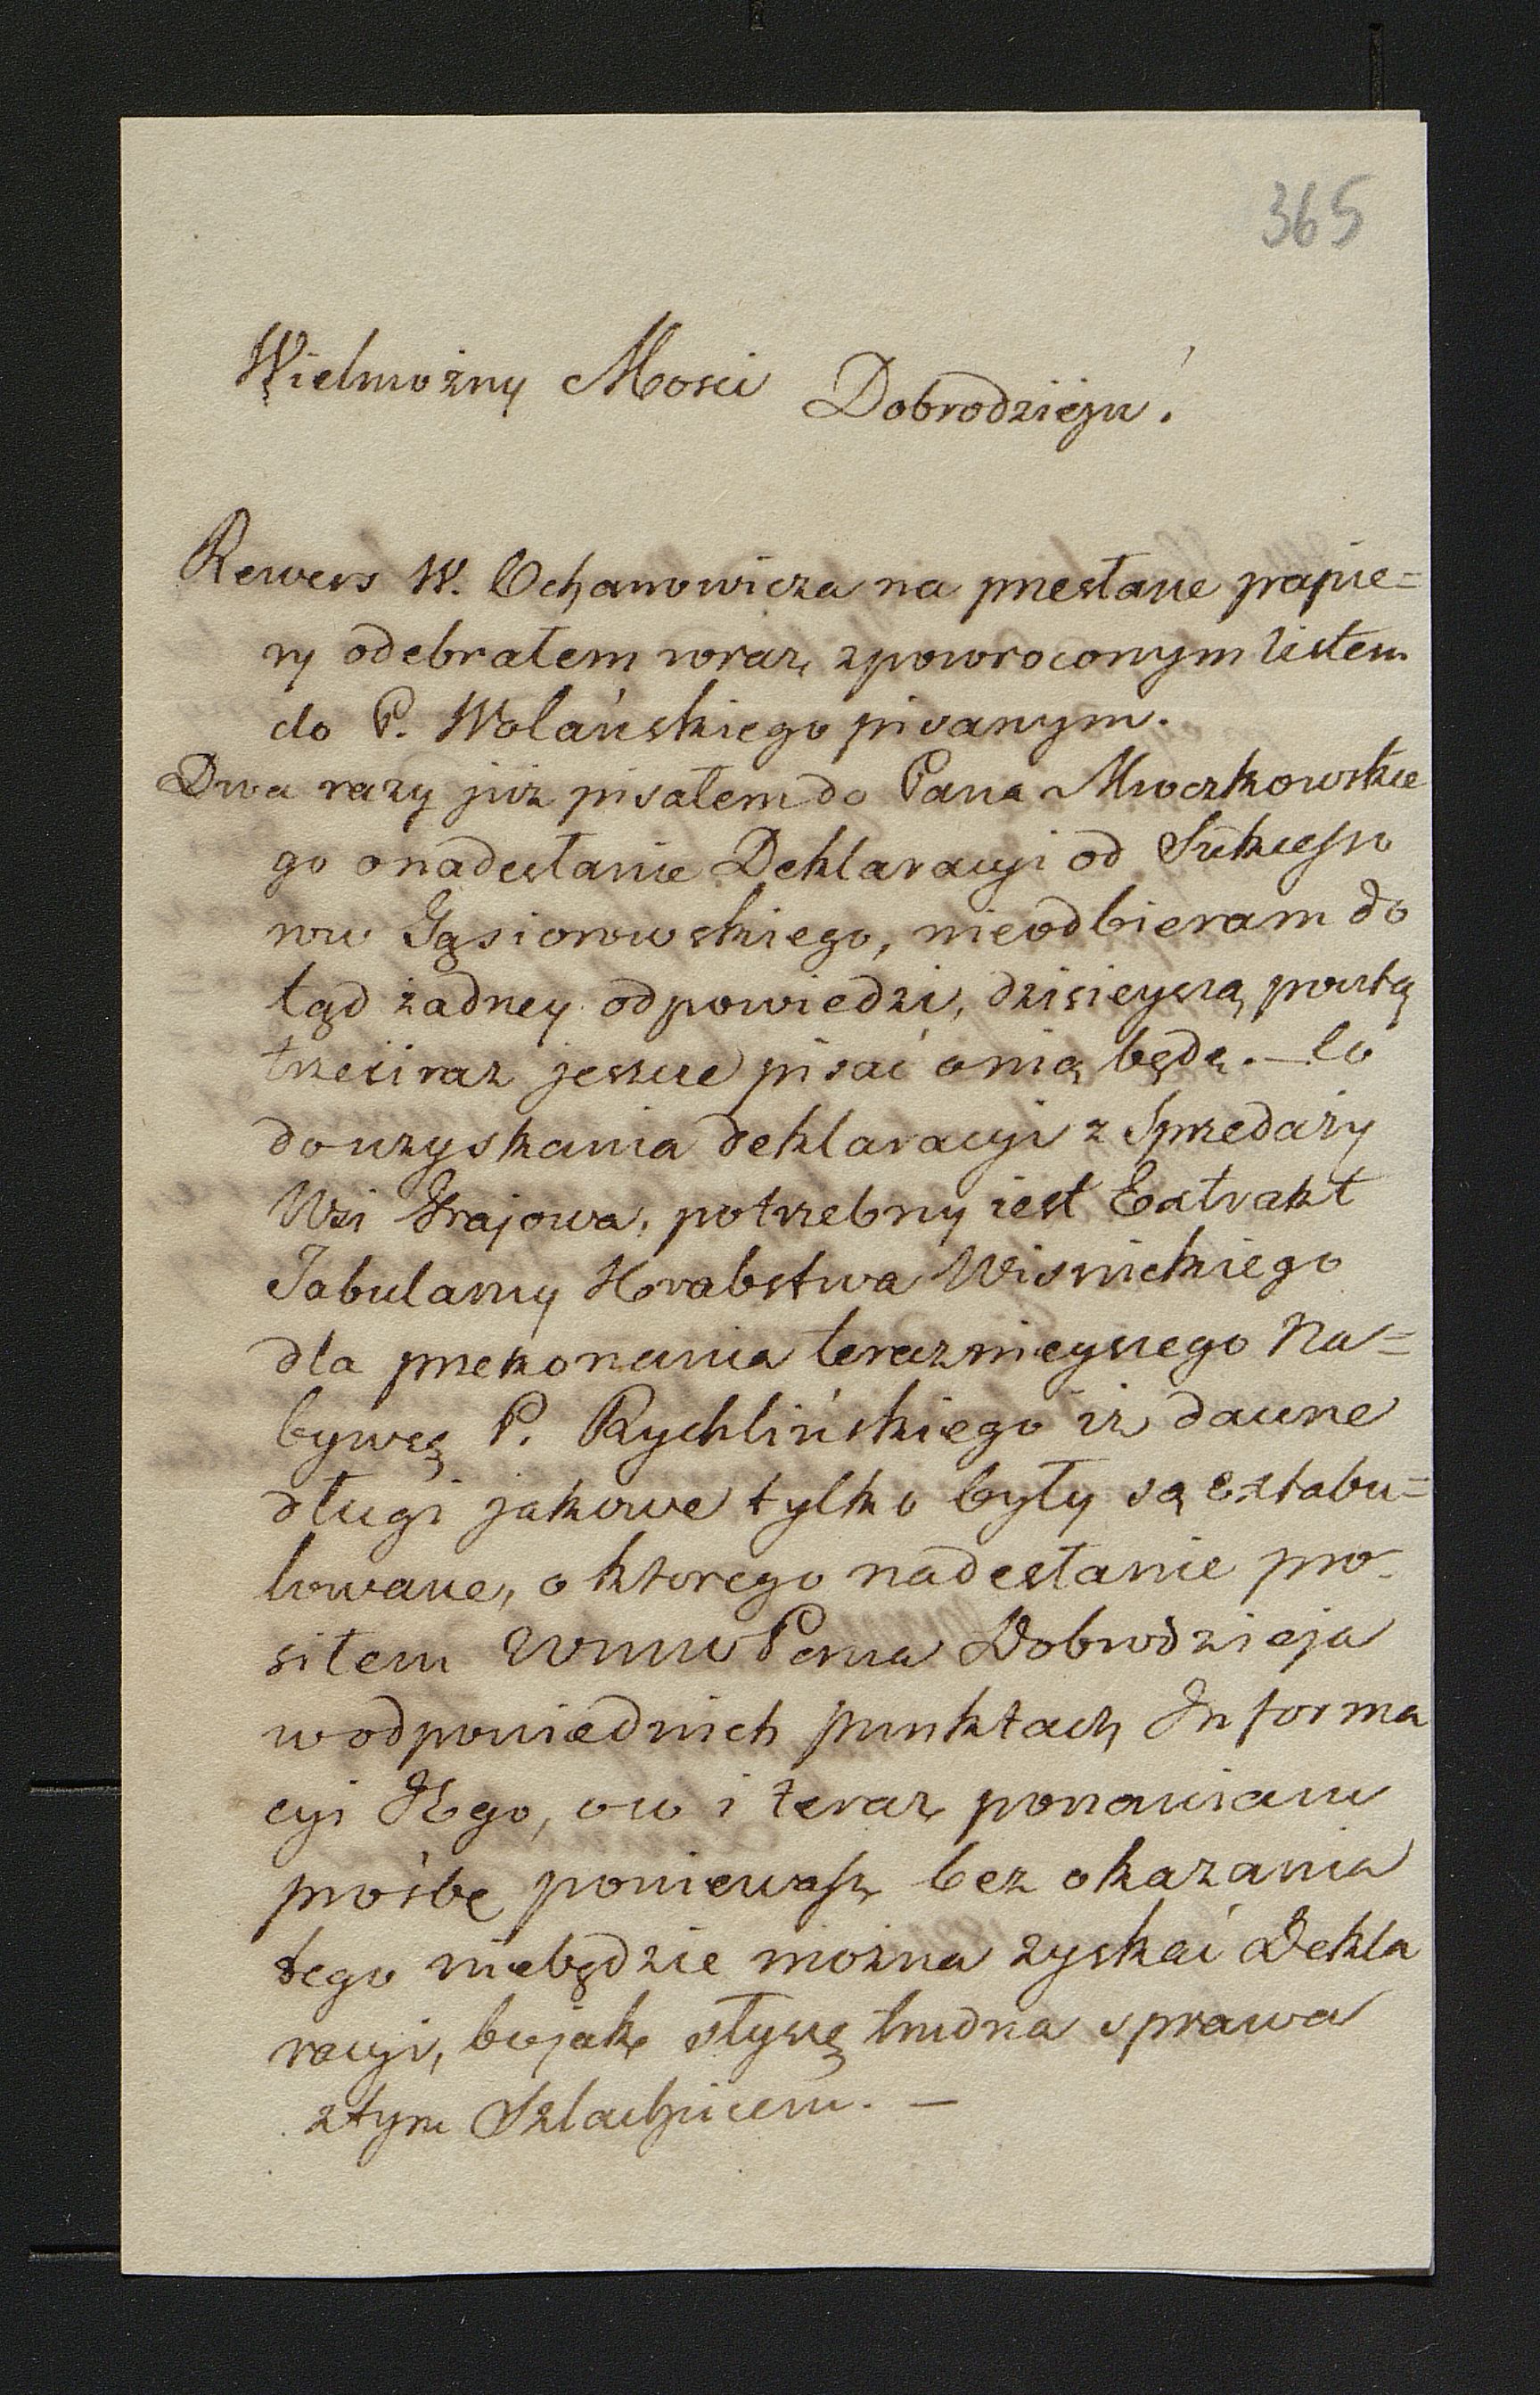 365
Wielmożny Mosci Dobrodzieju!
Rewers W. Ochanowicza na przesłane papie=
ry odebrałem wraz zpowroconym listem
do P. Wolańskiego pisanym.
Dwa razy już pisałem do Pana Mroczkowskie
go onadesłanie Deklaracyi od Sukcesso
row Gąsiorowskiego, nieodbieram do
tąd żadney odpowiedzi, dzisieyszą pocztą
trzeci raz jeszcze pisać onią będę. – Co
douzyskania deklaracyi z Sprzedaży
Wsi Krajowa, potrzebny iest Extrakt
Tabularny Hrabstwa Wisnickiego
dla przekonania teraznieyszego Na=
bywcę P. Rychlińskiego iż dawne
długi jakowe tylko były są extabu=
lowane, o ktorego nadesłanie pro-
siłem Pana Dobrodzieja
wodpowiednich punktach Informa
cyi Jego, oco i teraz ponawiam
prośbę poniewasz bez okazania
tego niebędzie można zyskać Dekla
racyi, bojak słyszę trudna sprawa
ztym Szlachcicem. –